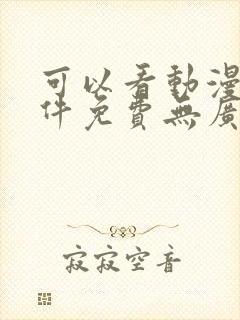 可以看動漫
件免費無廣
寂寂空音